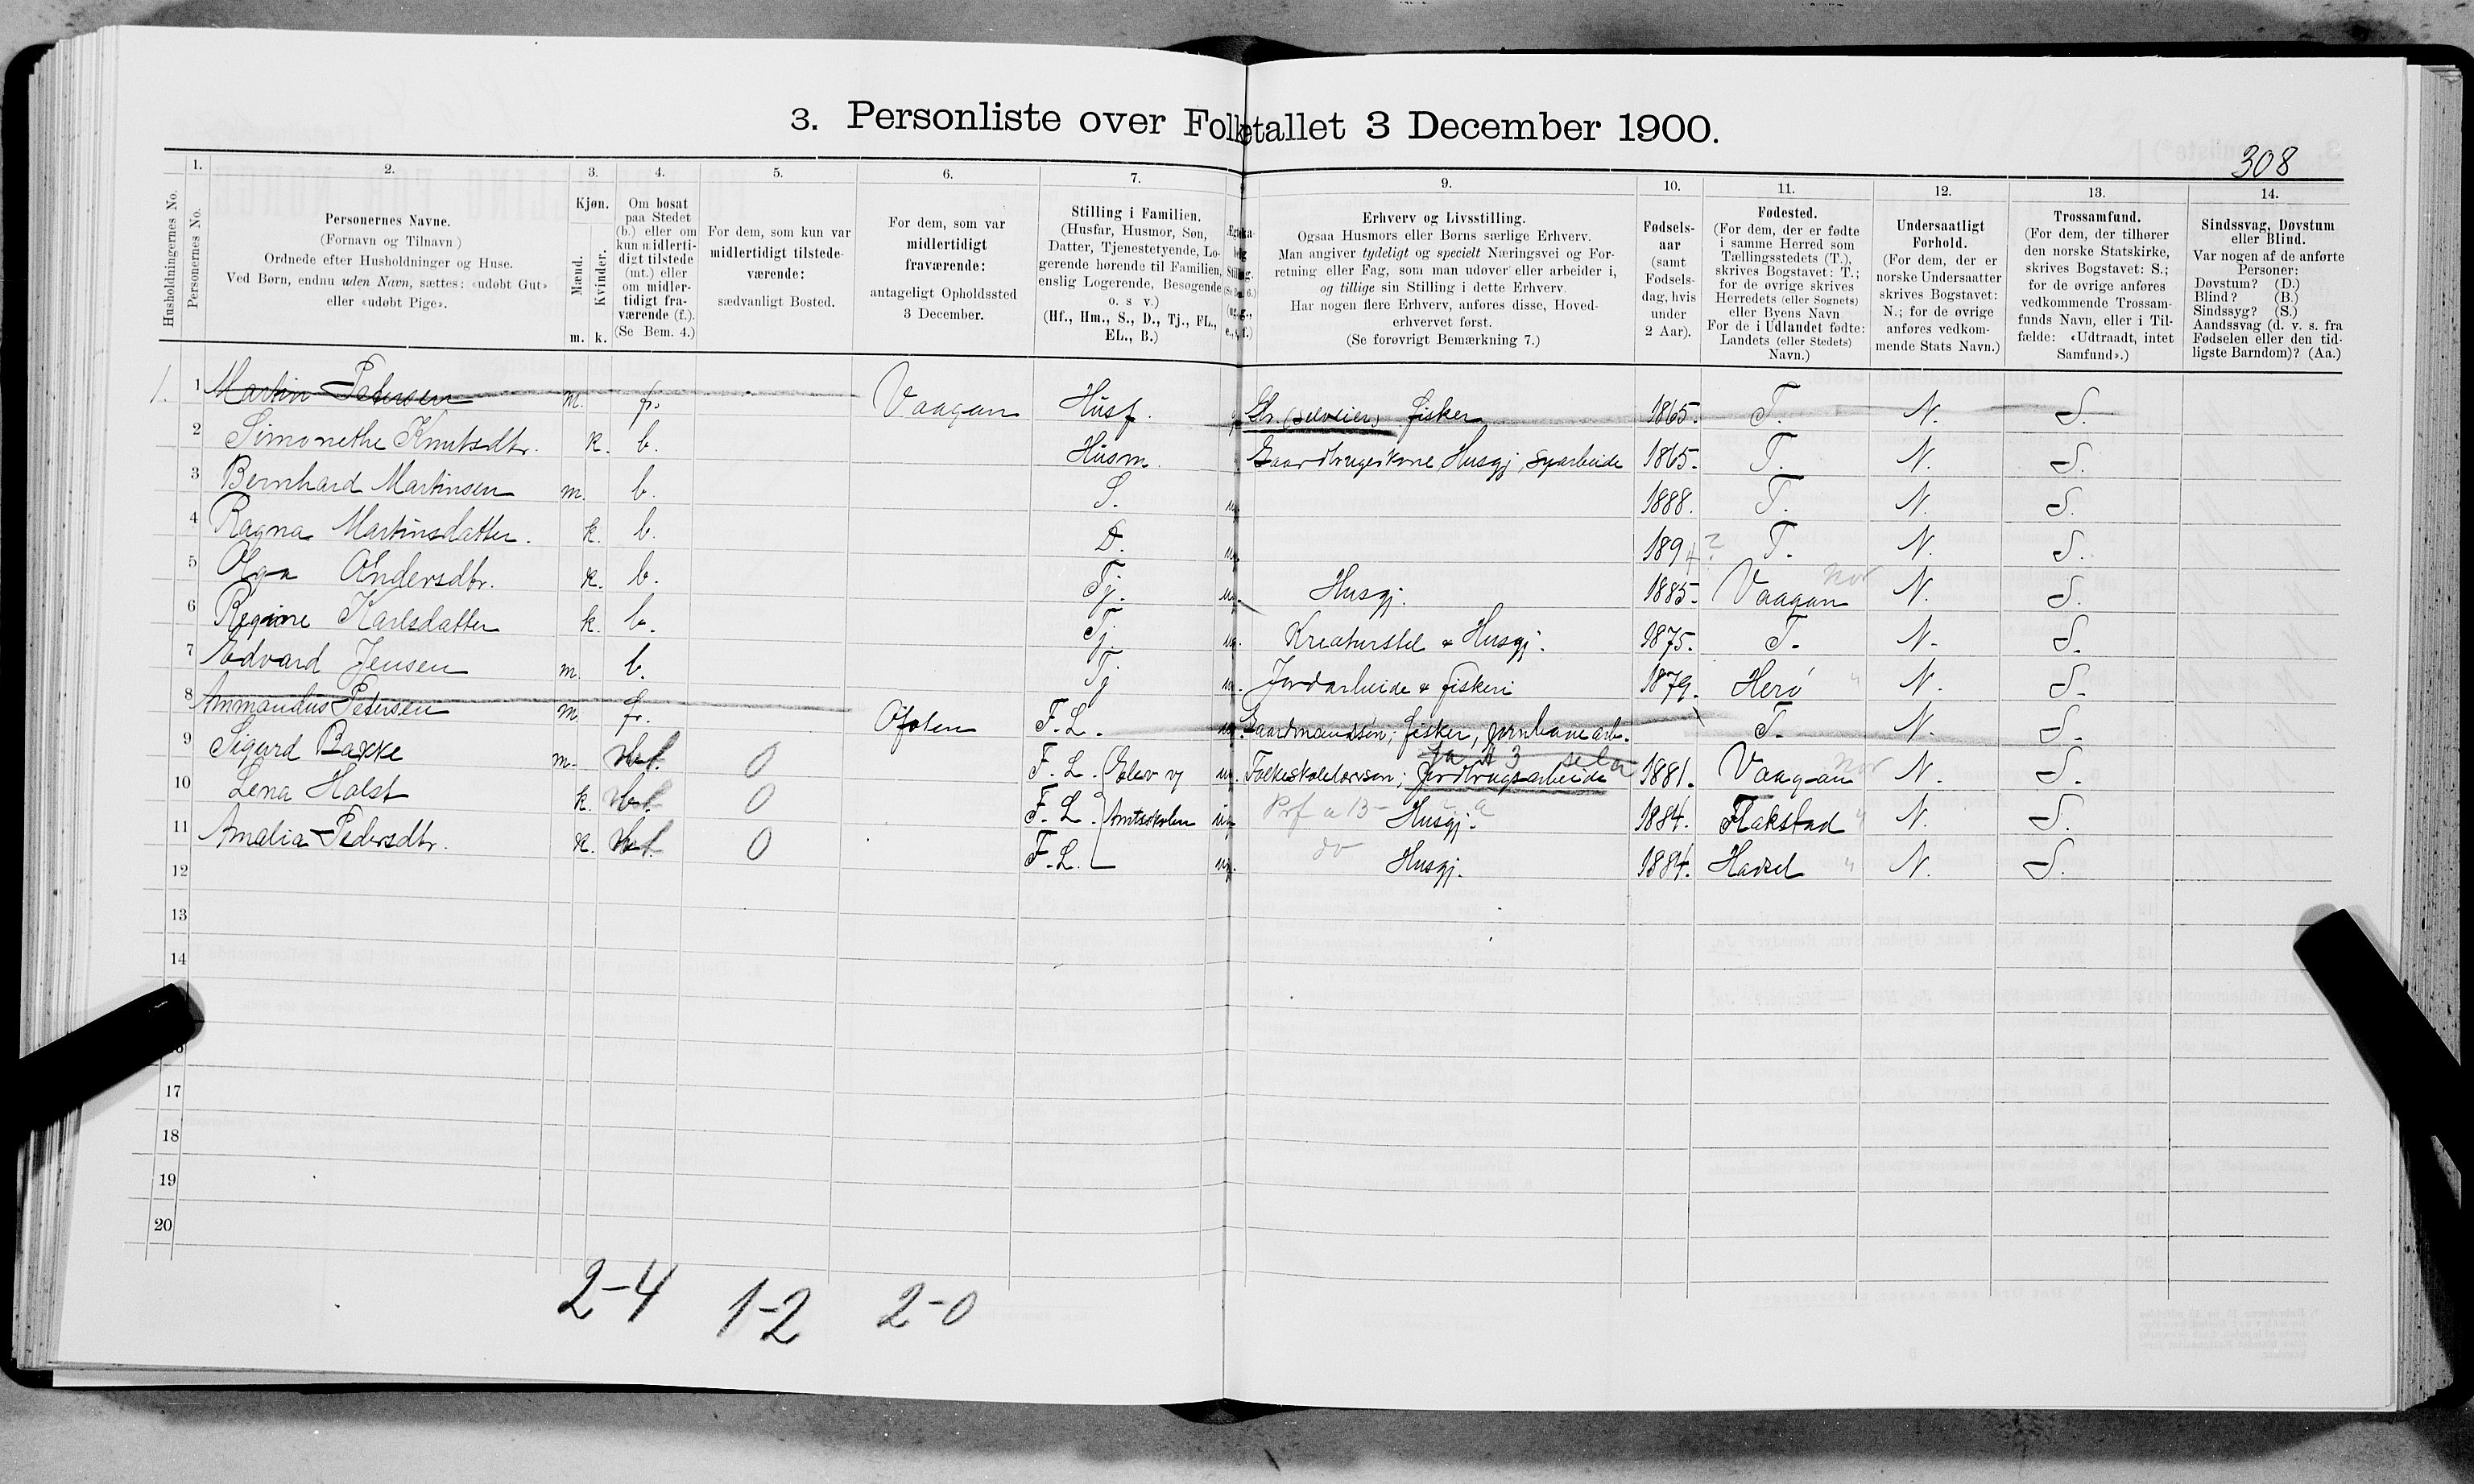 3. Personliste over Folketallet 3 December 1900.
308
1.
2.
3.
4.
5.
6.
7.
9.
10.
11.
12.
13.
14.
Husholdningernes No.
Personernes No.
Personernes Navne.
(Fornavn og Tilnavn)
Ordnede efter Husholdninger og Huse.
Ved Børn, endnu uden Navn, sættes: «udøbt Gut»
eller «udøbt Pige».
Kjøn.
Mænd.
Kvinder.
m. k.
Om bosat
paa Stedet
(b.) eller om
kun midlerti-
digt tilstede
(mt.) eller
om midler-
tidigt fra-
værende (f.).
(Se Bem. 4.)
For dem, som kun var
midlertidigt tilstede-
værende:
sædvanligt Bosted.
For dem, som var
midlertidigt
fraværende:
antageligt Opholdssted
3 December.
Stilling i Familien.
(Husfar, Husmor, Søn,
Datter, Tjenestetyende, Lo-
gerende hørende til Familien,
enslig Logerende, Besøgende
o. s v.)
(Hf., Hm., S., D., Tj., FL.,
EL., B.)
Erhverv og Livsstilling.
Ogsaa Husmors eller Børns særlige Erhverv.
Man angiver tydeligt og specielt Næringsvei og For-
retning eller Fag, som man udøver eller arbeider i,
og tillige sin Stilling i dette Erhverv.
Har nogen flere Erhverv, anføres disse, Hoved-
erhvervet først.
(Se forøvrigt Bemærkning 7.)
Fødsels-
aar
(samt
Fødsels-
dag, hvis
under
2 Aar).
Fødested.
(For dem, der er fødte
i samme Herred som
Tællingsstedets (T.),
skrives Bogstavet: T.;
for de øvrige skrives
Herredets (eller Sognets)
eller Byens Navn
For de i Udlandet fødte:
Landets (eller Stedets)
Navn.)
Undersaatligt
Forhold.
(For dem, der er
norske Undersaatter
skrives Bogstavet:
N.; for de øvrige
anføres vedkom-
mende Stats Navn.)
Trossamfund.
(For dem, der tilhører
den norske Statskirke,
skrives Bogstavet: S.;
for de øvrige anføres
vedkommende Trossam-
funds Navn, eller i Til-
fælde: «Udtraadt, intet
Samfund».)
Sindssvag, Døvstum
eller Blind.
Var nogen af de anførte
Personer:
Døvstum? (D.)
Blind? (B.)
Sindssyg? (S.)
Aandssvag (d. v. s. fra
Fødselen eller den tid-
ligste Barndom)? (Aa.)
1. 1 Martin Pedersen m. fr. Vaagan Husf. Gr. (selveier) fisker 1865. T. N. S.
2 Simonethe Knutsdtr. k. b. Husm. Gaardbrugerkone Husgj, syarbeide 1865. T. N. S.
3 Bernhard Martinsen m. b. S. ug. 1888. T. N. S.
4 Ragna Martinsdatter. k. b. D. ug. 1894 ? T. N. S.
5 Olga Andersdtr. k. b. Tj. ug. Husgj. 1885. Vaagan Nor N. S.
6 Regine Karlsdatter k. b. Tj ug. Kreaturstel & Husgj. 1875. T. N. S.
7 Edvard Jensen m. b. Tj ug. Jordarbeide & fiskeri 1879. Herø " N. S.
8 Ammandus Pedersen m. fr. Ofoten F. L. ug. Gaardmandssøn; fisker, jernbanearb. T. N. S.
9 Sigurd Bakke m. 0 F. L. Elev v ug. Folkeskolelærersøn; Jordbrugsarbeide 1881. Vaagan Nor N. S.
10 Lena Holst k. 0 F. L. Amtsskolen ug. Husgj. 1884. Flakstad " N. S.
11 Amalia Pedersdtr. k. 0 F. L. ug. do Husgj. 1884. Hadsel " N. S.
12
13
14
17
18
19
20
2-4 1-2 2-0